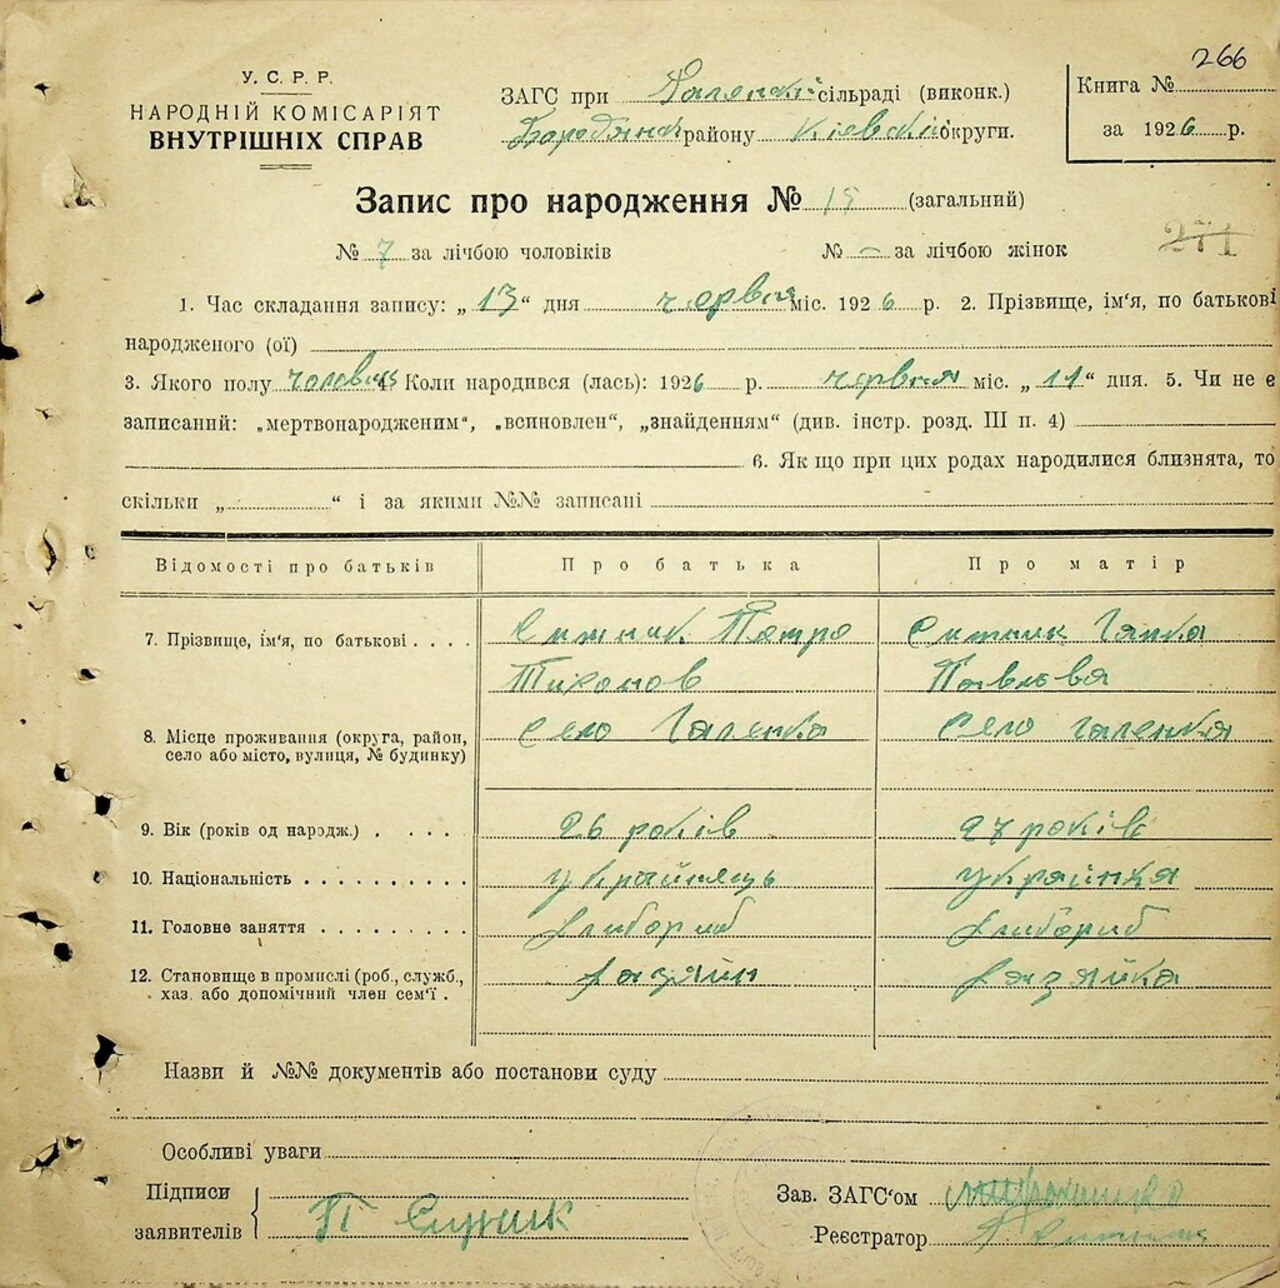 266
У. С. Р. Р.
НАРОДНІЙ КОМІСАРІЯТ
ВНУТРІШНІХ СПРАВ
ЗАГС при сільраді (виконк.)
Бородянськ району Київської округи.
Книга №
за 1926 р.
Запис про народження № 15 (загальний)
№ 7 за лічбою чоловіків № — за лічбою жінок
271
1. Час складання запису: „13“ дня червня міс. 1926 р. 2. Прізвище, ім'я, по батькові
народженого (ої)
3. Якого полу чоловіч 4. Коли народився (лась): 1926 р. червня міс. „11“ дня. 5. Чи не є
записаний: „мертвонародженим“, „всиновлен“, „знайденням“ (див. інстр. розд. III п. 4)
6. Як що при цих родах народилися близнята, то
скільки „ “ і за якими №№ записані
Відомості про батьків Про батька Про матір
7. Прізвище, ім'я, по батькові . . . . Ситник Петро Ситник Ганка
Тихонов Павлова
8. Місце проживання (округа, район, Село Галенка Село Галенка
село або місто, вулиця, № будинку)
9. Вік (років од народж.) . . . . 26 років 27 років
10. Національність . . . . . . . . . . українець українка
11. Головне заняття . . . . . . . . . хлібороб хлібороб
12. Становище в промислі (роб., служб., хазяйн хазяйка
хаз. або допомічний член сем'ї .
Назви й №№ документів або постанови суду
Особливі уваги
Підписи
заявителів П Ситник
Зав. ЗАГС'ом
Реєстратор